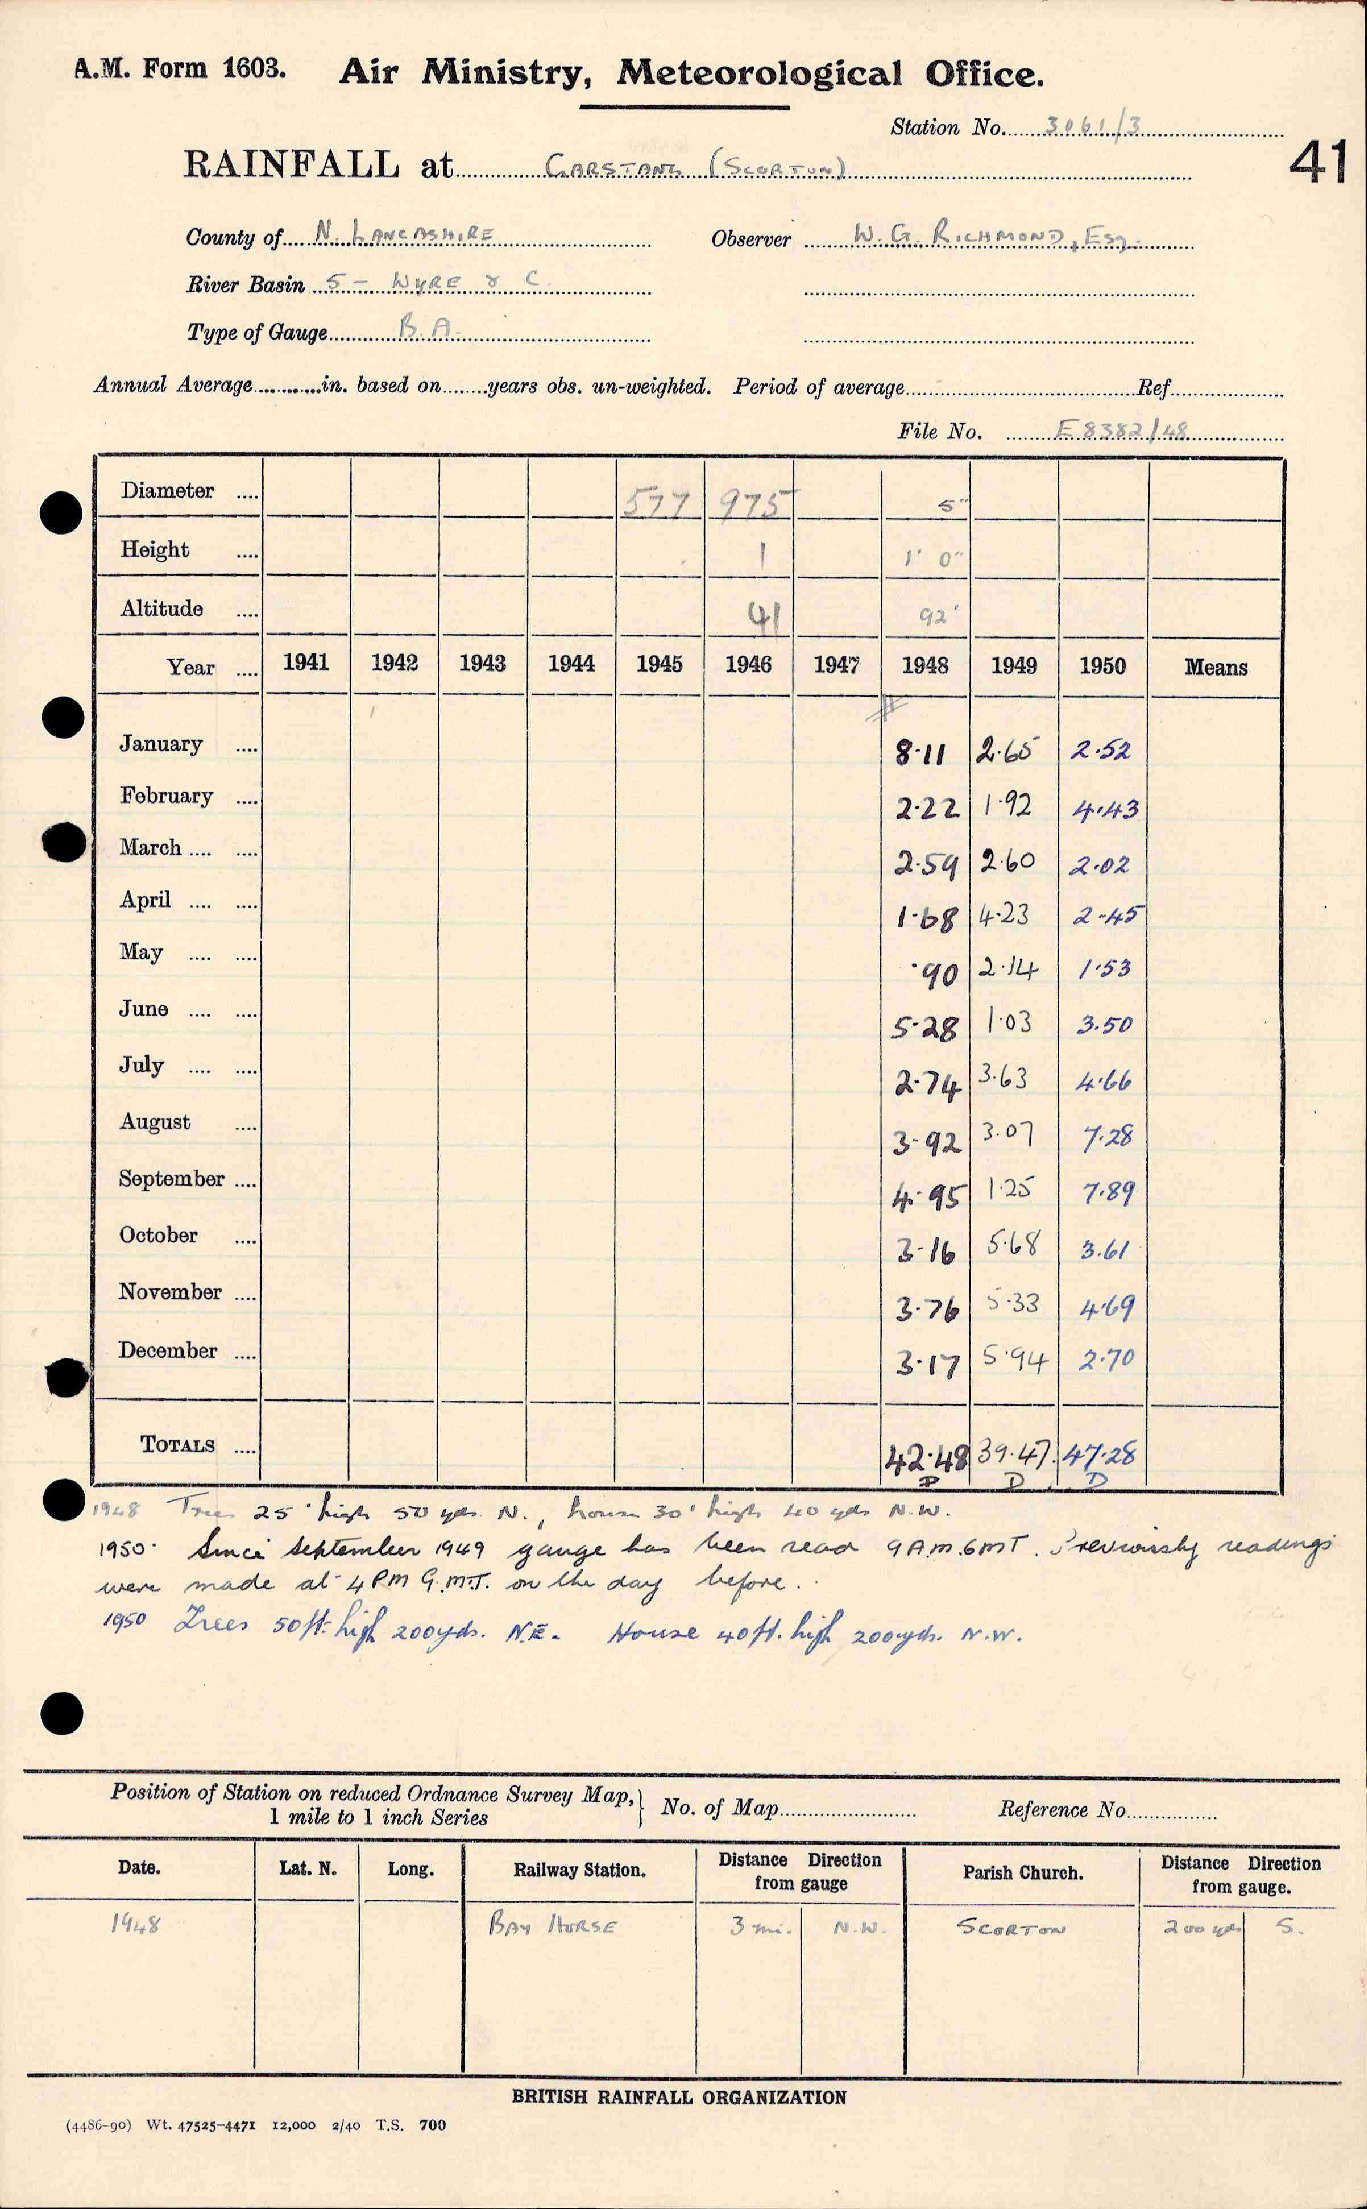 A.M. Form 1603. Air Ministry, Meteorological Office.
Station No. 3061/3
RAINFALL at GARSTANG (SCORTON)
41
County of N. LANCASHIRE Observer W. G. RICHMOND, ESQ.
River Basin 5 - WYRE & C.
Type of Gauge B.A.
Annual Average in. based on years obs. un-weighted. Period of average Ref.
File No. E8382/48
Diameter .... 577 975 5"
Height .... 1 1' 0"
Altitude .... 41 92'
Year .... 1941 1942 1943 1944 1945 1946 1947 1948 1949 1950 Means
#
January .... 8·11 2·65 2·52
February .... 2·22 1·92 4·43
March .... .... 2·59 2·60 2·02
April .... .... 1·68 4·23 2·45
May .... .... ·90 2·14 1·53
June .... .... 5·28 1·03 3·50
July .... .... 2·74 3·63 4·66
August .... 3·92 3·07 7·28
September .... 4·95 1·25 7·89
October .... 3·16 5·68 3·61
November .... 3·76 5·33 4·69
December .... 3·17 5·94 2·70
TOTALS .... 42·48 39·47 47·28
D D D
1948 Trees 25' high 50 yds N., house 30' high 40 yds N.W.
1950. Since September 1949 gauge has been read 9 A.M. GMT. Previously readings
were made at 4 PM G.M.T. on the day before.
1950 Trees 50ft. high 200yds. N.E. House 40ft. high 200yds. N.W.
Position of Station on reduced Ordnance Survey Map, 1 mile to 1 inch Series } No. of Map Reference No.
Date. Lat. N. Long. Railway Station. Distance Direction from gauge Parish Church. Distance Direction from gauge.
1948 BAY HORSE 3 mi. N.W. SCORTON 200 yds S.
BRITISH RAINFALL ORGANIZATION
(4486-90) Wt. 47525-4471 12,000 2/40 T.S. 700